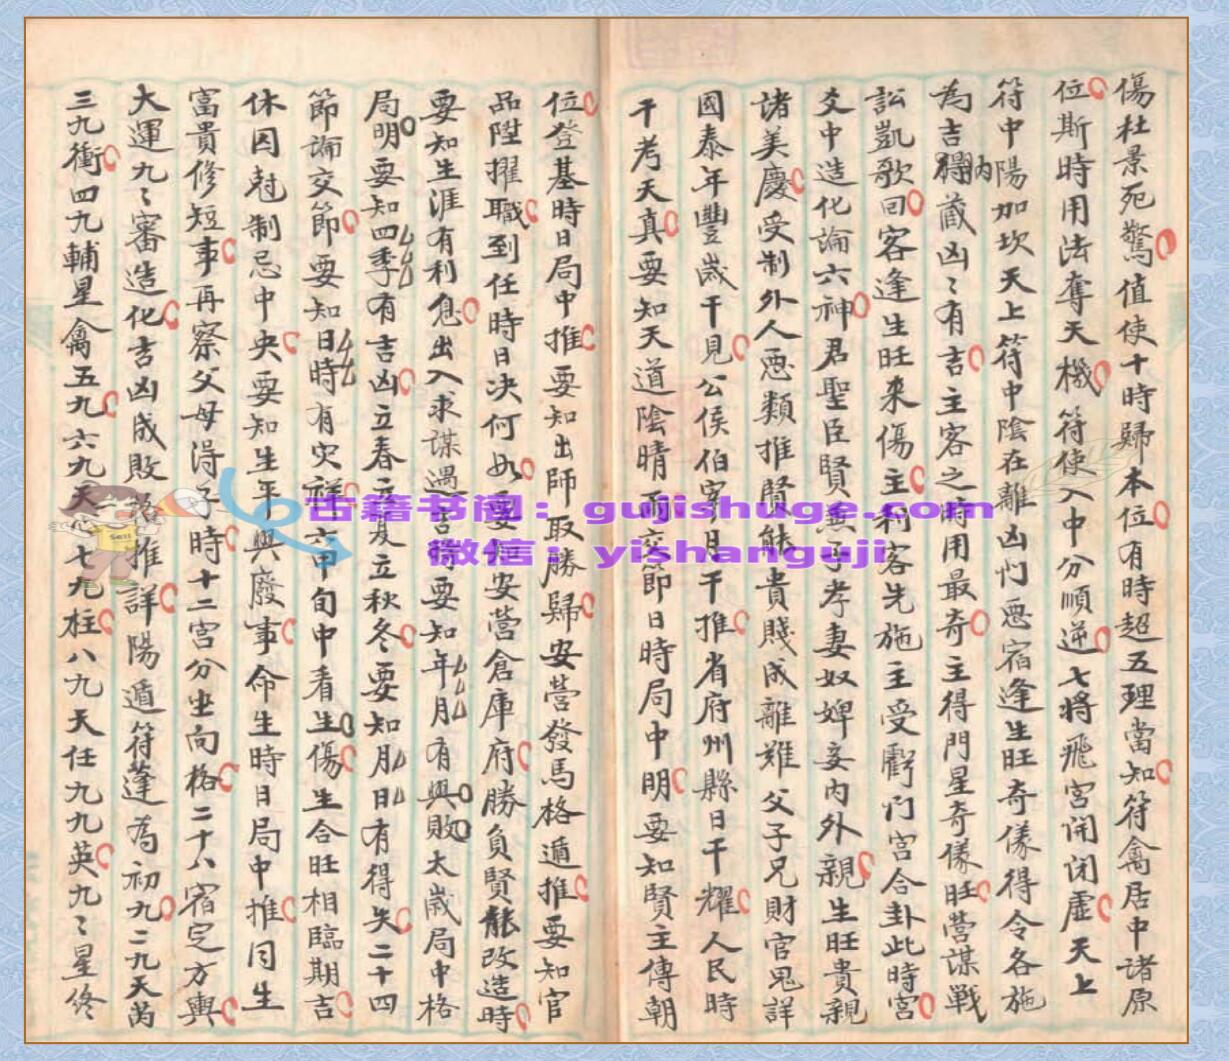 傷杜景死驚值使十時歸本位有時超五理當知符禽居中諸原
位斯時用法奪天機符使入中分順逆七將飛宮開闭虛天上
符中陽加坎天上符中陰在離凶门惡宿逢生旺奇儀得令各施
為吉得內藏凶〻有吉主客之時用最奇主得門星奇儀旺營謀戰
訟凱歌回客逢生旺來傷主利客先施主受虧门宮合卦此時宮
爻中造化論六神君聖臣賢無子孝妻奴婢妾內外親生旺貴親
諸美慶受制外人惡類推賢能貴賤成離難父子兄財官鬼詳
國泰年豐歲干見公侯伯宰月干推省府州縣日干耀人民時
干考天真要知天道陰晴雨交節日時局中明要知賢主傳朝
位登基時日局中推要知出師取勝歸安營發馬格遁推要知官
品陞擢職到任時日決何如要知安營倉庫府勝負賢能改造時
要知生涯有利息出入求謀遇吉格要知年月有興敗太歲局中格
局明要知四季有吉凶立春立夏立秋冬要知月日有得失二十四
節論交節要知日時有灾祥六甲旬中看生傷生合旺相臨期吉
休囚尅制忌中央要知生年興廢事命生時日局中推同生
富貴修短事再察父母得子時十二宮分坐向格二十八宿定方輿
大運九〻審造化吉凶成敗推詳陽遁符蓬為初九二九天芮
三九衝四九輔星禽五九六九天七九柱八九天任九九英九〻星終
古籍书阁：gujishuge.com
微信：yishanguji